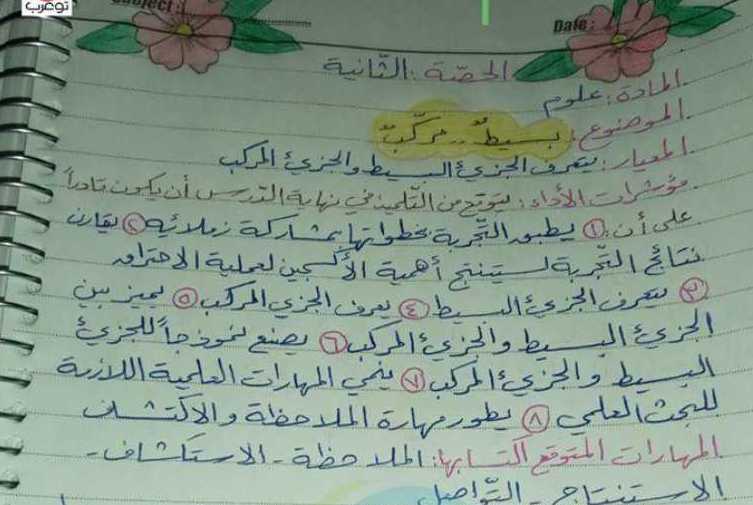 توعرب
Subject:
Date:
الحصّة الثّانية
المادة: علوم
الموضوع: بسيطٌ.. مركّبٌ
المعيار: يتعرف الجزيء البسيط والجزيء المركب
مؤشرات الأداء: يتوقع من التّلميذ في نهاية الدّرس أن يكون قادراً
على أن: ① يطبق التّجربة بخطواتها بمشاركة زملائه ② يقارن
نتائج التّجربة ليستنتج أهمية الأكسجين لعملية الاحتراق
③ يتعرف الجزيء البسيط ④ يعرف الجزيء المركب ⑤ يميز بين
الجزيء البسيط والجزيء المركب ⑥ يصنع نموذجاً للجزيء
البسيط والجزيء المركب ⑦ ينمي المهارات العلمية اللازمة
للبحث العلمي ⑧ يطور مهارة الملاحظة والاكتشاف
المهارات المتوقع اكتسابها: الملاحظة - الاستكشاف -
الاستنتاج - التّواصل